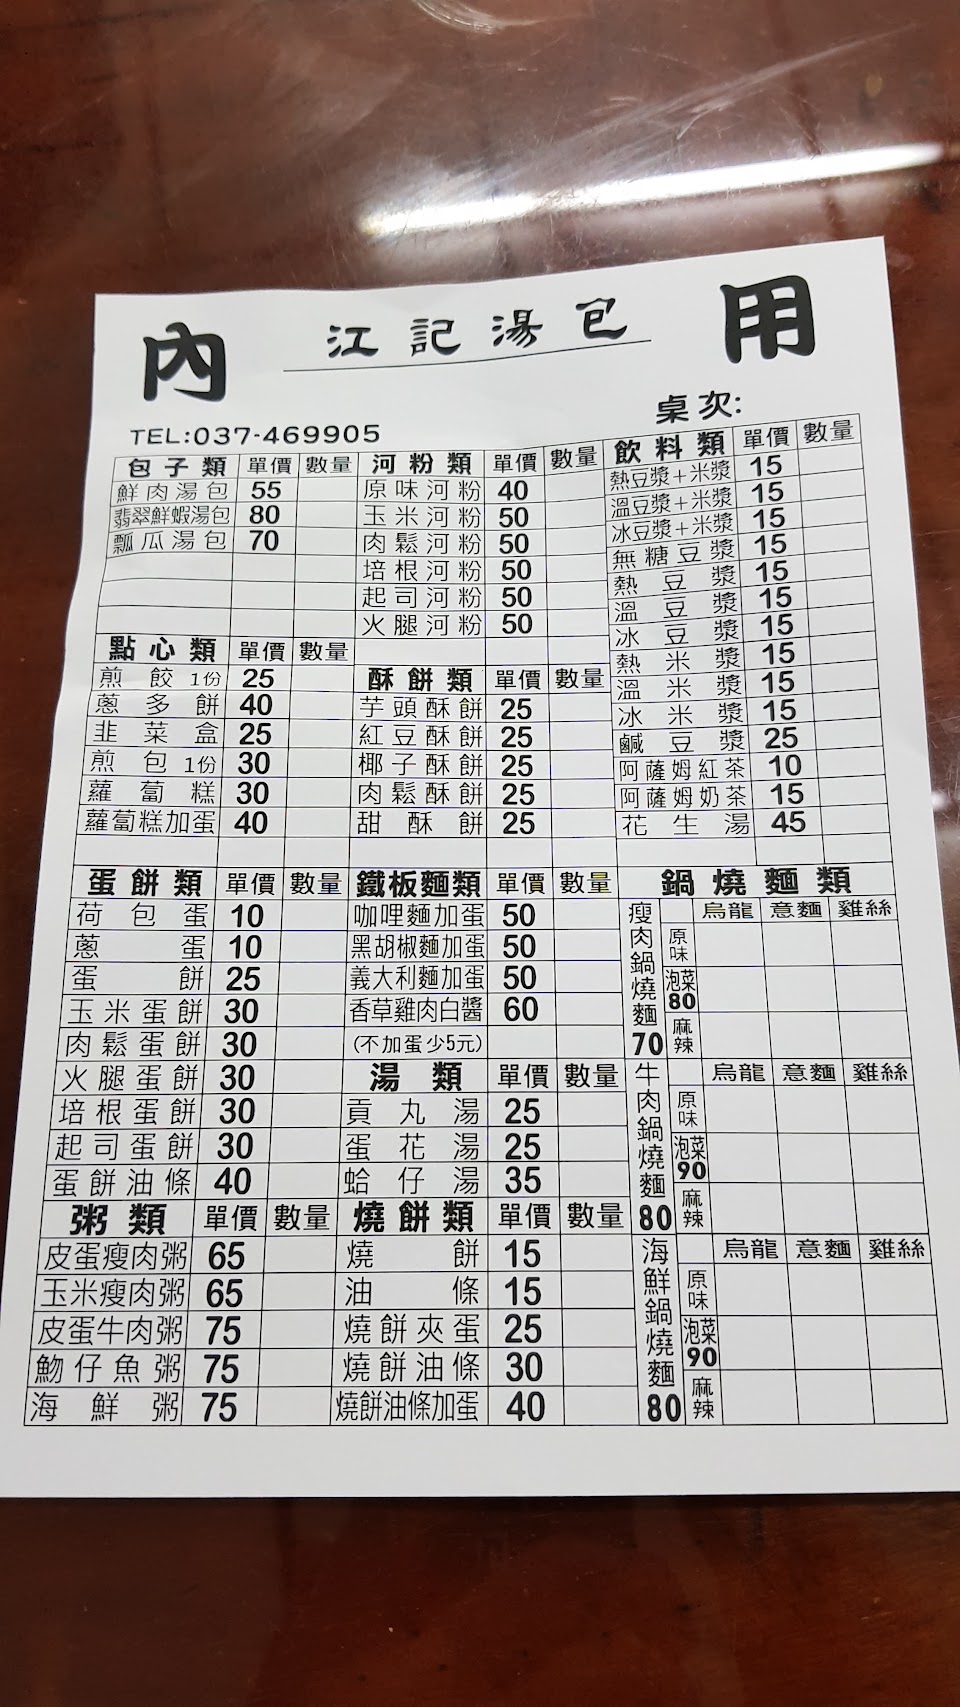 內 江記湯包 用
桌次:
TEL:037-469905
包子類 單價 數量
鮮肉湯包 55
翡翠鮮蝦湯包 80
瓢瓜湯包 70
點心類 單價 數量
煎餃 1份 25
蔥多餅 40
韭菜盒 25
煎包 1份 30
蘿蔔糕 30
蘿蔔糕加蛋 40
蛋餅類 單價 數量
荷包蛋 10
蔥蛋 10
蛋餅 25
玉米蛋餅 30
肉鬆蛋餅 30
火腿蛋餅 30
培根蛋餅 30
起司蛋餅 30
蛋餅油條 40
粥類 單價 數量
皮蛋瘦肉粥 65
玉米瘦肉粥 65
皮蛋牛肉粥 75
魩仔魚粥 75
海鮮粥 75
河粉類 單價 數量
原味河粉 40
玉米河粉 50
肉鬆河粉 50
培根河粉 50
起司河粉 50
火腿河粉 50
酥餅類 單價 數量
芋頭酥餅 25
紅豆酥餅 25
椰子酥餅 25
肉鬆酥餅 25
甜酥餅 25
鐵板麵類 單價 數量
咖哩麵加蛋 50
黑胡椒麵加蛋 50
義大利麵加蛋 50
香草雞肉白醬 60
(不加蛋少5元)
湯類 單價 數量
貢丸湯 25
蛋花湯 25
蛤仔湯 35
燒餅類 單價 數量
燒餅 15
油條 15
燒餅夾蛋 25
燒餅油條 30
燒餅油條加蛋 40
飲料類 單價 數量
熱豆漿+米漿 15
溫豆漿+米漿 15
冰豆漿+米漿 15
無糖豆漿 15
熱豆漿 15
溫豆漿 15
冰豆漿 15
熱米漿 15
溫米漿 15
冰米漿 15
鹹豆漿 25
阿薩姆紅茶 10
阿薩姆奶茶 15
花生湯 45
鍋燒麵類
瘦肉鍋燒麵 70
烏龍 意麵 雞絲
原味
泡菜 80
麻辣
牛肉鍋燒麵 80
烏龍 意麵 雞絲
原味
泡菜 90
麻辣
海鮮鍋燒麵 80
烏龍 意麵 雞絲
原味
泡菜 90
麻辣